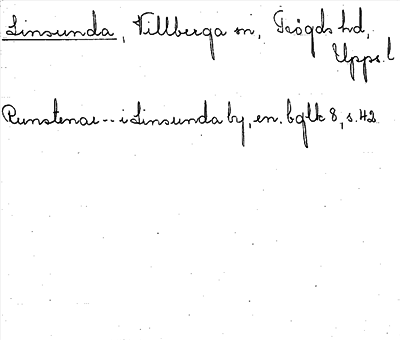 Linsunda, Villberga sn, Trögds hd,
Upps. l
Runstenar -- i Linsunda by, en. bglk 8, s. 42